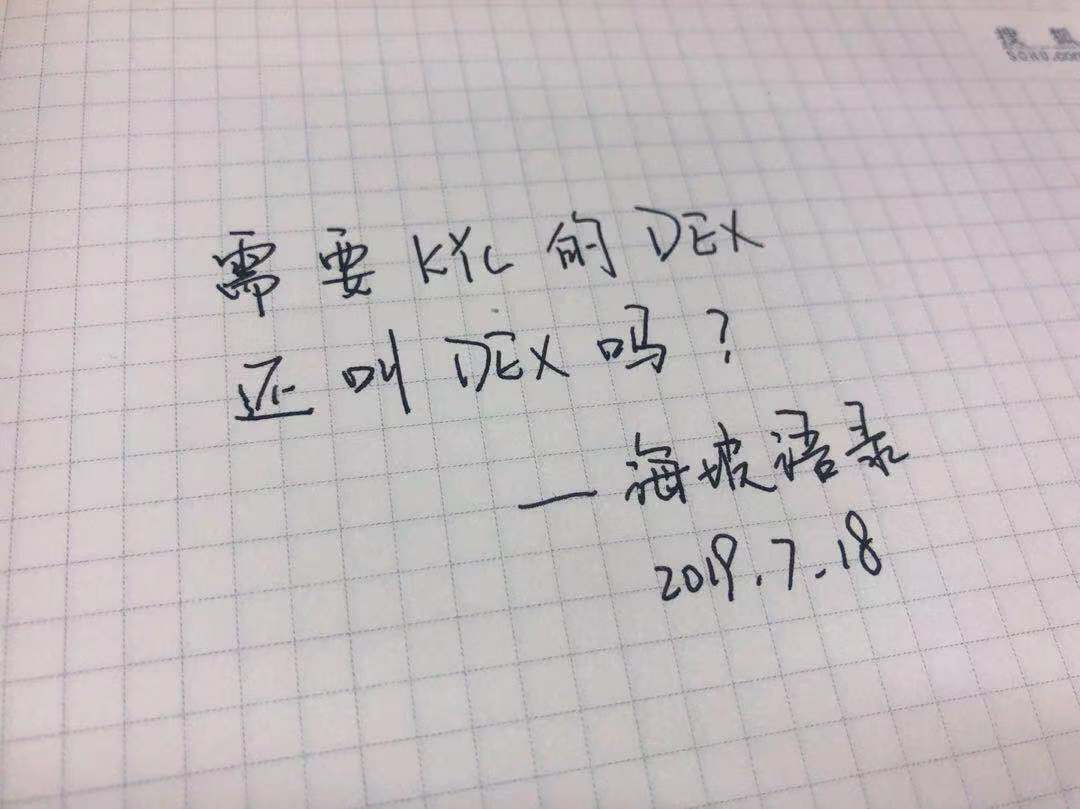 搜狐
SOHU.com
需要KYC的DEX
还叫DEX吗?
—海坡语录
2019.7.18